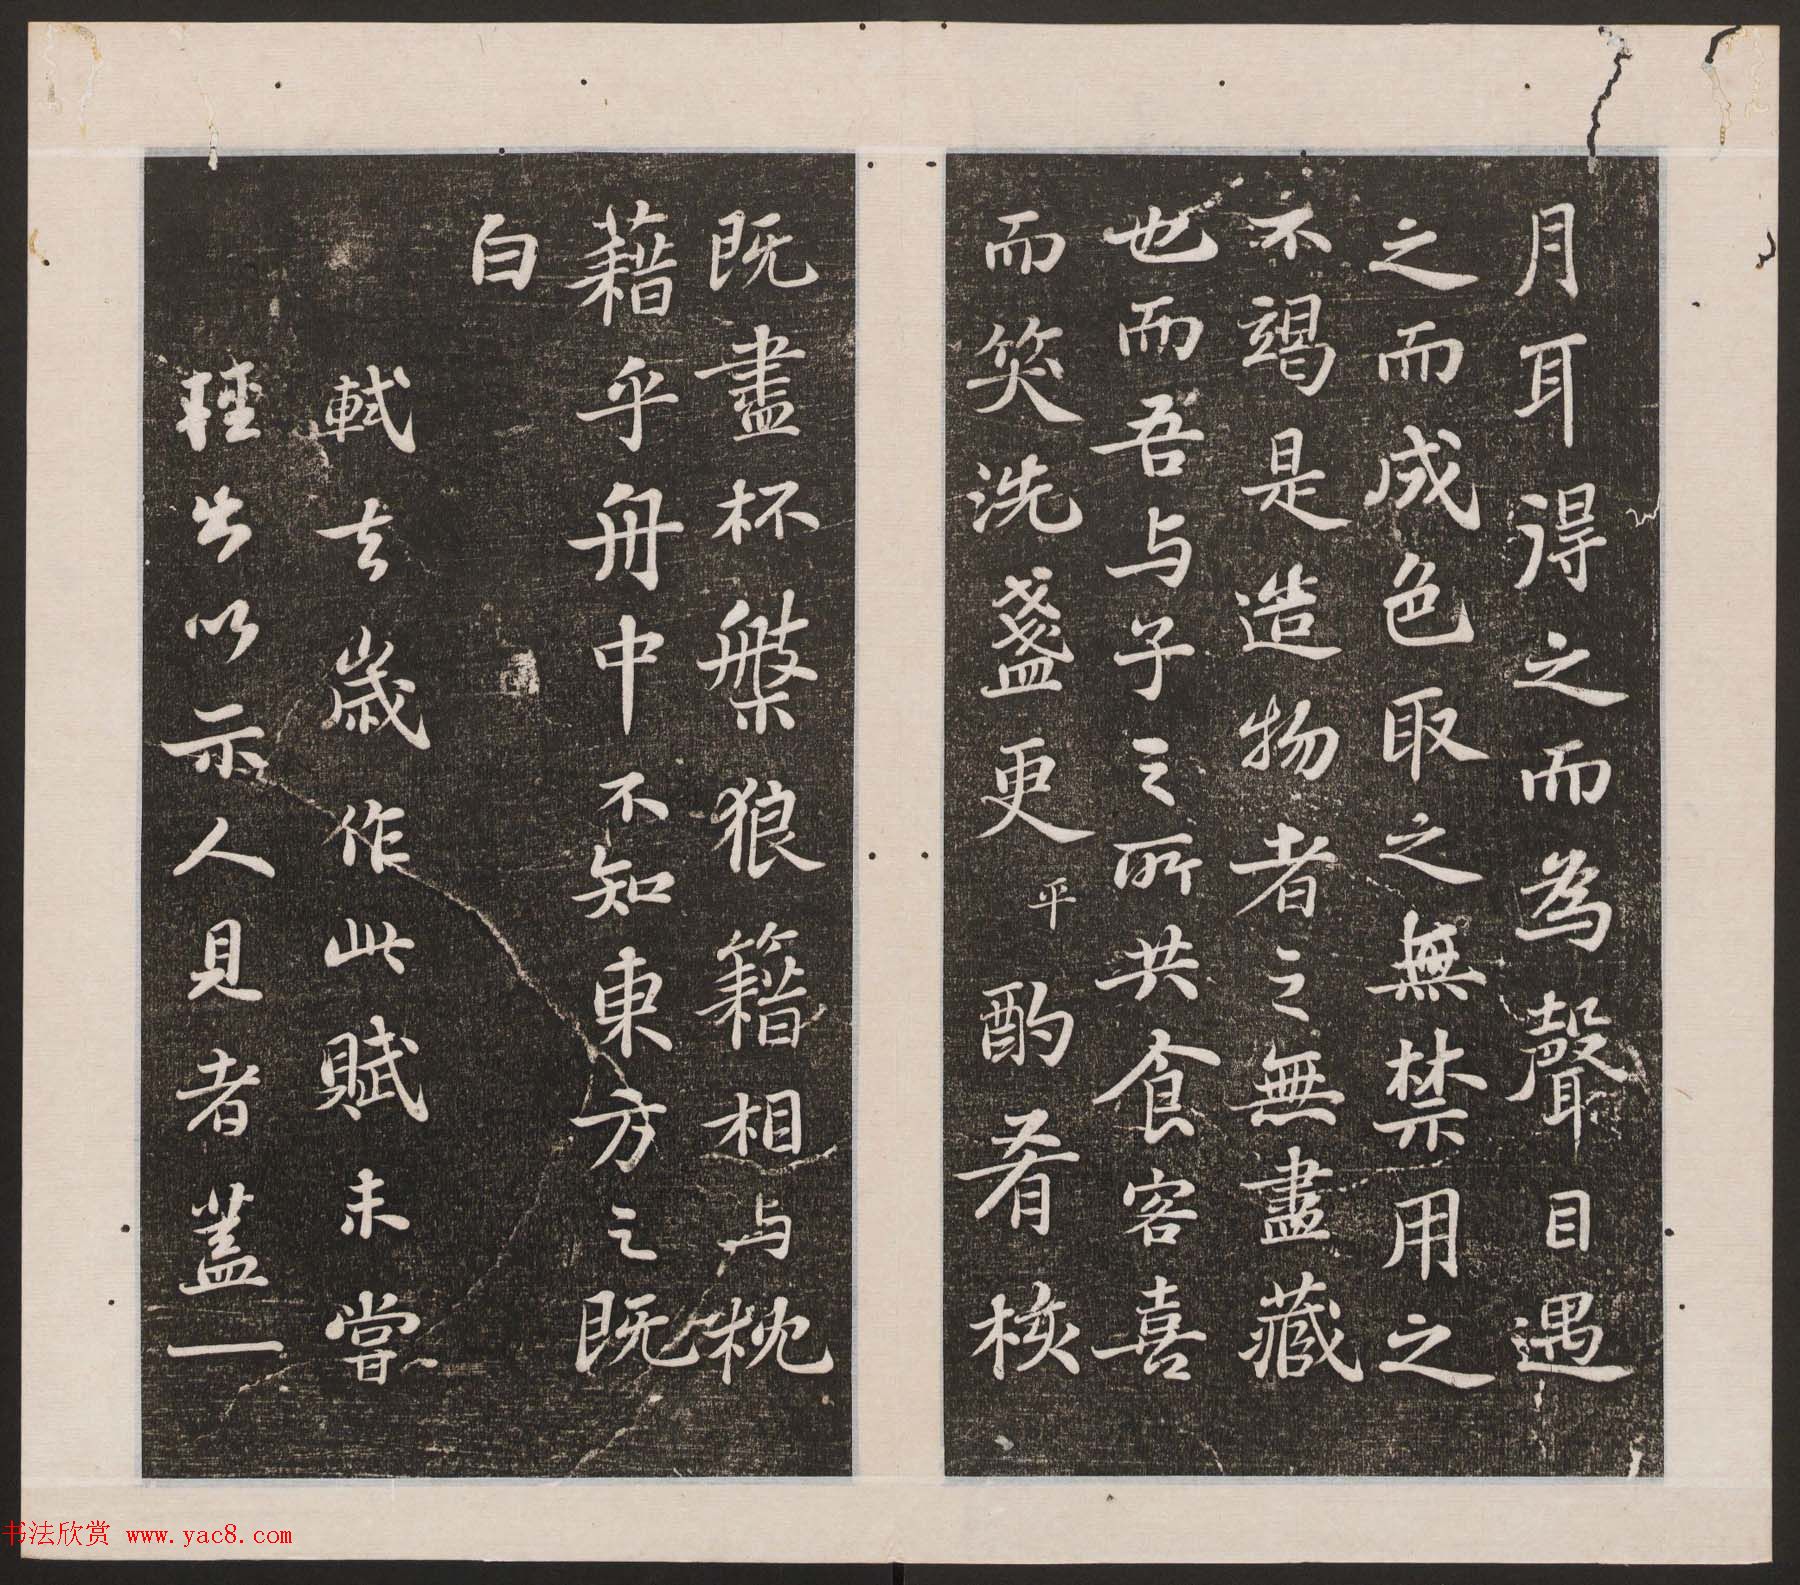 月耳得之而為聲目遇
之而成色取之無禁用之
不竭是造物者之無盡藏
也而吾与子之所共食客喜
而笑洗盞更平酌肴核
既盡杯槃狼籍相与枕
藉乎舟中不知東方之既
白
軾去歲作此賦未嘗
輕出以示人見者蓋一
书法欣赏 www.yac8.com